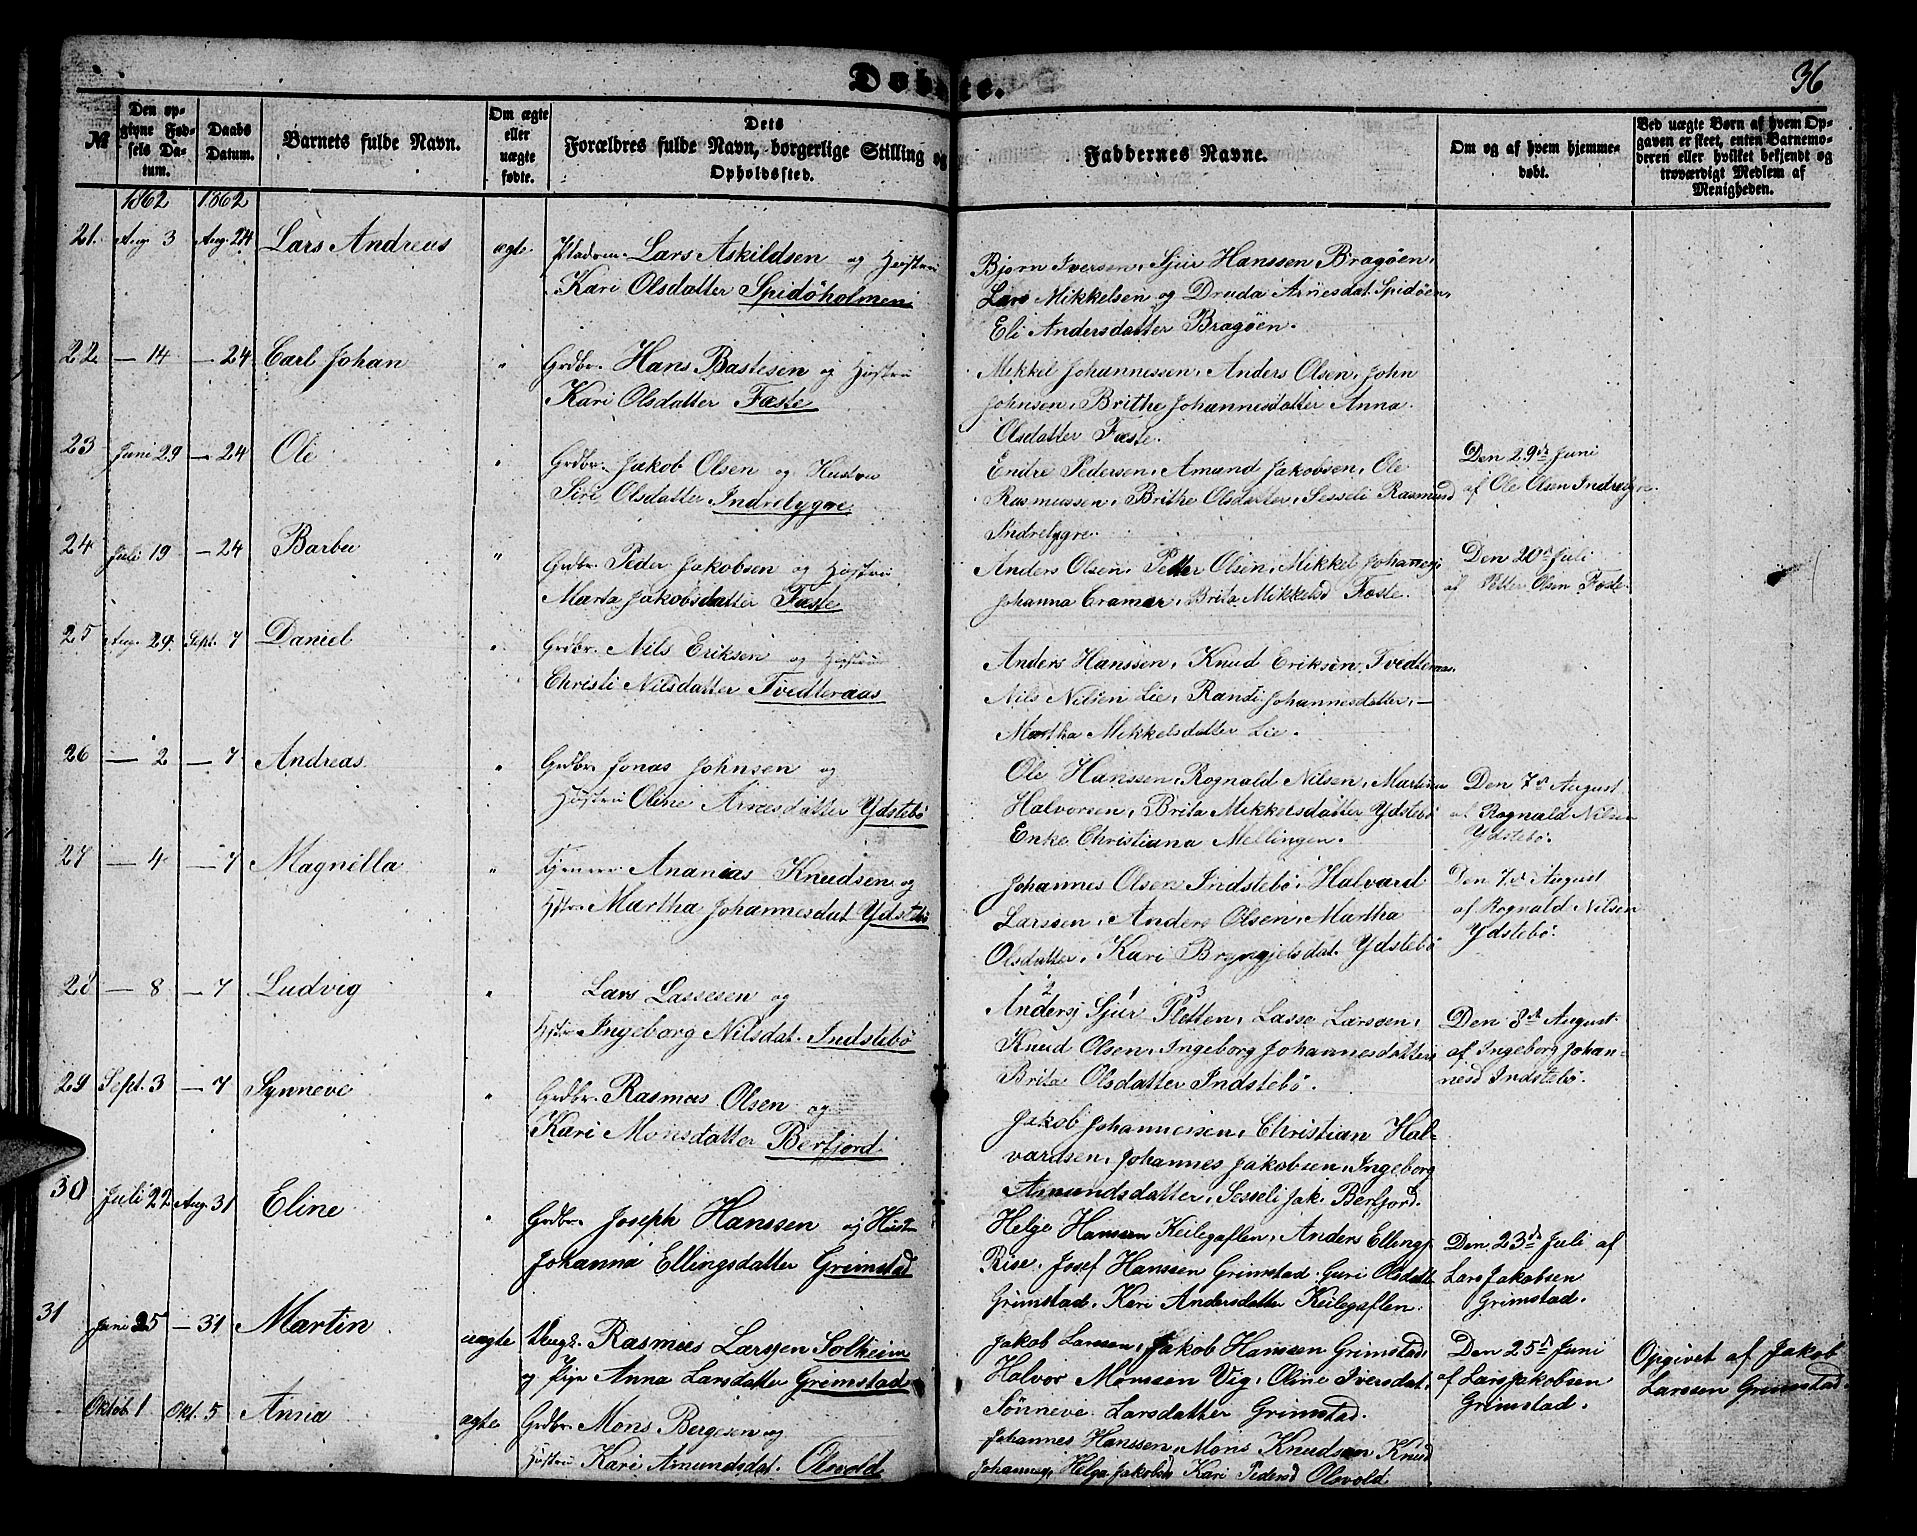 Døbte.
36
№
Den opgivne Fødsels Datum.
Daabs Datum.
Barnets fulde Navn.
Om ægte eller uægte fødte.
Dets Forældres fulde Navn, borgerlige Stilling og Opholdssted.
Faddernes Navne.
Om og af hvem hjemmedøbt.
Ved uægte Børn af hvem Opgaven er skeet, enten Barnemoderen eller hvilket bekjendt og troværdigt Medlem af Menigheden.
1862 1862
21. Aug. 3 Aug. 24 Lars Andreas ægte Pladsm. Lars Askildsen og Hustru
Kari Olsdatter Spidsøholmen
Bjørn Iversen, Sjur Hanssen Bragøen,
Lars Mikkelsen og Druda Arnesdat. Spidøen,
Eli Andersdatter Bragøen.
22 — 14 — 24 Carl Johan " Grdbr. Hans Bastesen og Hustru
Kari Olsdatter Fæste
Mikkel Johannessen, Anders Olsen, John
Johnsen, Brithe Johannesdatter Anna
Olsdatter Fæste.
23 Juni 29 — 24 Ole " Grdbr. Jakob Olsen og Hustru
Siri Olsdatter Indrelygre
Endre Pedersen, Amund Jakobsen, Ole
Rasmussen, Brithe Olsdatter, Sesseli Rasmusd
Indrelygre.
Den 29de Juni
af Ole Olsen Indrelygre.
24 Juli 19 — 24 Barbu " Grdbr. Peder Jakobsen og Hustru
Marta Jakobsdatter Fæste
Anders Olsen, Petter Olsen, Mikkel Johannesj
Johanna Cramer, Brita Mikkelsd Fæste.
Den 20de Juli
af Petter Olsen Fæste.
25 Aug. 29. Sept. 7 Daniel " Grdbr. Nils Eriksen og Hustru
Christi Nilsdatter Tvedteraas
Anders Hanssen, Knud Eriksen Tvedteraas.
Nils Nilsen Lie, Randi Johannesdatter, —
Martha Mikkelsdatter Lie.
26 — 2 — 7 Andreas " Grdbr. Jonas Johnsen og
Hustru Oline Arnesdatter Ydstebø
Ole Hanssen, Rognald Nilsen, Martinus
Halvorsen, Brita Mikkelsdatter Ydstebø
Enke Christiana Mellingen.
Den 7de August
af Rognald Nilsen
Ydstebø.
27 — 4 — 7 Magnilla " Ananias Knudsen og
Hstr. Martha Johannesdat Ydstebø
Johannes Olsen Indstebø, Halvard
Larssen, Anders Olsen, Martha
Olsdatter, Kari Brynjelsdat. Ydstebø
Den 7de August
af Rognald Nilsen
Ydstebø.
28 — 8 — 7 Ludvig " Lars Lassesen og
Hstr. Ingeborg Nilsdat. Indstebø
Andersj Sjur Pletten, Lasse Larssen,
Knud Olsen, Ingeborg Johannesdatter,
Brita Olsdatter Indstebø.
Den 8de August
af Ingeborg Johan-
nesd Indstebø.
29 Sept. 3 — 7 Synneve " Grdbr. Rasmus Olsen og
Kari Monsdatter Berfjord.
Jakob Johannessen, Christian Hal-
vardsen, Johannes Jakobsen, Ingeborg
Amundsdatter, Sesseli Jak. Berfjord.
30 Juli 22 Aug. 31 Eline " Grdbr. Joseph Hanssen og Hustr
Johanna Ellingsdatter Grimstad
Helge Hanssen Keilegaflen, Anders Ellingsj
Rise, Josef Hanssen Grimstad, Guri Olsdatt.
Grimstad, Kari Andersdatter Keilegaflen.
Den 23de Juli af
Lars Jakobsen
Grimstad.
31 Juni 25 — 31 Martin uægte Ungk. Rasmus Larssen Solheim
og Pige Anna Larsdatter Grimstad
Jakob Larssen, Jakob Hanssen Grimstad,
Halvor Monssen Vig, Oline Iversdat,
Sønneve Larsdatter Grimstad.
Den 25de Juni
af Lars Jakobsen
Grimstad.
Opgivet af Jakob
Larssen Grimstad.
Oktob. 1 Okt. 5 Anna ægte Grdbr. Mons Bergesen og
Hustru Kari Amundsdat. Olsvold
Johannes Hanssen, Mons Knudsen Knud
Johannesj Helga Jakobsd Kari Pedersd Olsvold